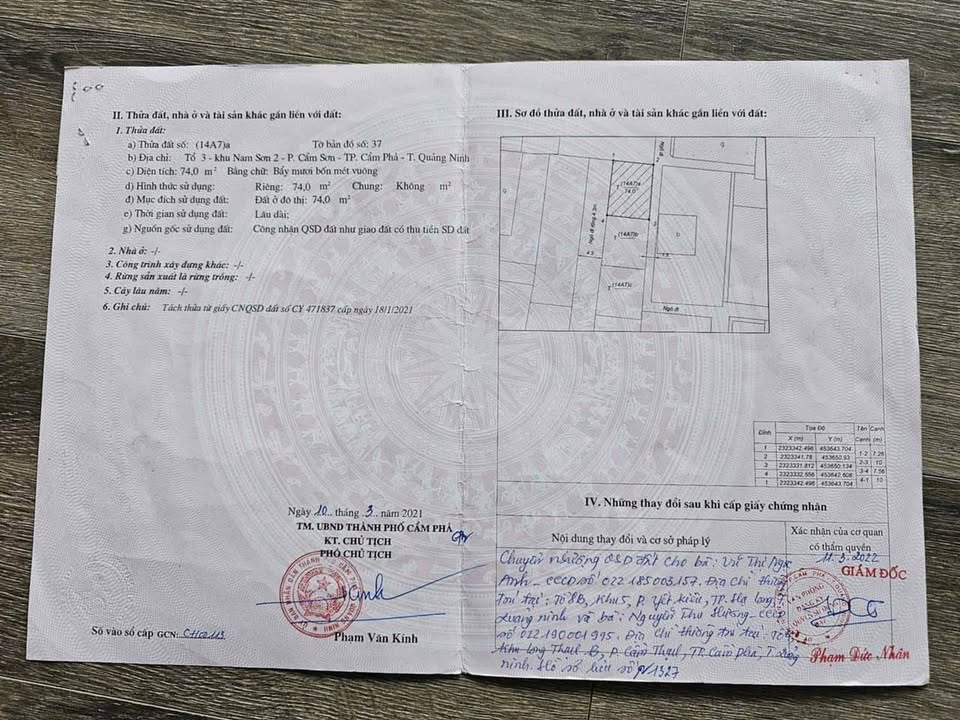 II. Thửa đất, nhà ở và tài sản khác gắn liền với đất:
1. Thửa đất:
a) Thửa đất số: (14A7)a Tờ bản đồ số: 37
b) Địa chỉ: Tổ 3 - khu Nam Sơn 2 - P. Cẩm Sơn - TP. Cẩm Phả - T. Quảng Ninh
c) Diện tích: 74,0 m² Bằng chữ: Bẩy mươi bốn mét vuông
d) Hình thức sử dụng: Riêng: 74,0 m² Chung: Không m²
đ) Mục đích sử dụng đất: Đất ở đô thị: 74,0 m²
e) Thời gian sử dụng đất: Lâu dài;
g) Nguồn gốc sử dụng đất: Công nhận QSD đất như giao đất có thu tiền SD đất
2. Nhà ở: -/-
3. Công trình xây dựng khác: -/-
4. Rừng sản xuất là rừng trồng: -/-
5. Cây lâu năm: -/-
6. Ghi chú: Tách thửa từ giấy CNQSD đất số CY 471837 cấp ngày 18/1/2021
Ngày 10 tháng 3 năm 2021
TM. UBND THÀNH PHỐ CẨM PHẢ
KT. CHỦ TỊCH
PHÓ CHỦ TỊCH
Phạm Văn Kính
Số vào sổ cấp GCN: CH02113
III. Sơ đồ thửa đất, nhà ở và tài sản khác gắn liền với đất:
1
2
(14A7)a
74,0
4
3
Ngõ đi rộng 4.3m
T (14A7)b
4.3
1.5
T (14A7)c
Ngõ đi
Đỉnh Tọa Độ Tên Cạnh
X (m) Y (m) Cạnh (m)
1 2323342.496 453643.704
1-2 7.26
2 2323341.78 453650.93
2-3 10
3 2323331.812 453650.134
3-4 7.56
4 2323332.556 453642.608
4-1 10
1 2323342.496 453643.704
IV. Những thay đổi sau khi cấp giấy chứng nhận
Nội dung thay đổi và cơ sở pháp lý
Xác nhận của cơ quan
có thẩm quyền
Chuyển nhượng QSD đất cho bà: Vũ Thị Ngọc
Anh - CCCD số 022185003157, Địa chỉ thường
trú tại: Tổ 8B, Khu 5, P. Yết Kiêu, TP. Hạ Long, T.
Quảng ninh và bà: Nguyễn Thu Hương - CCCD
số 022190001995, Địa chỉ thường trú tại: Tổ
Khu Long Thạch B, P. Cẩm Thạch, TP. Cẩm Phả, T. Quảng
ninh. Hồ sơ lưu số 1327
11.3.2022
GIÁM ĐỐC
Phạm Đức Nhân